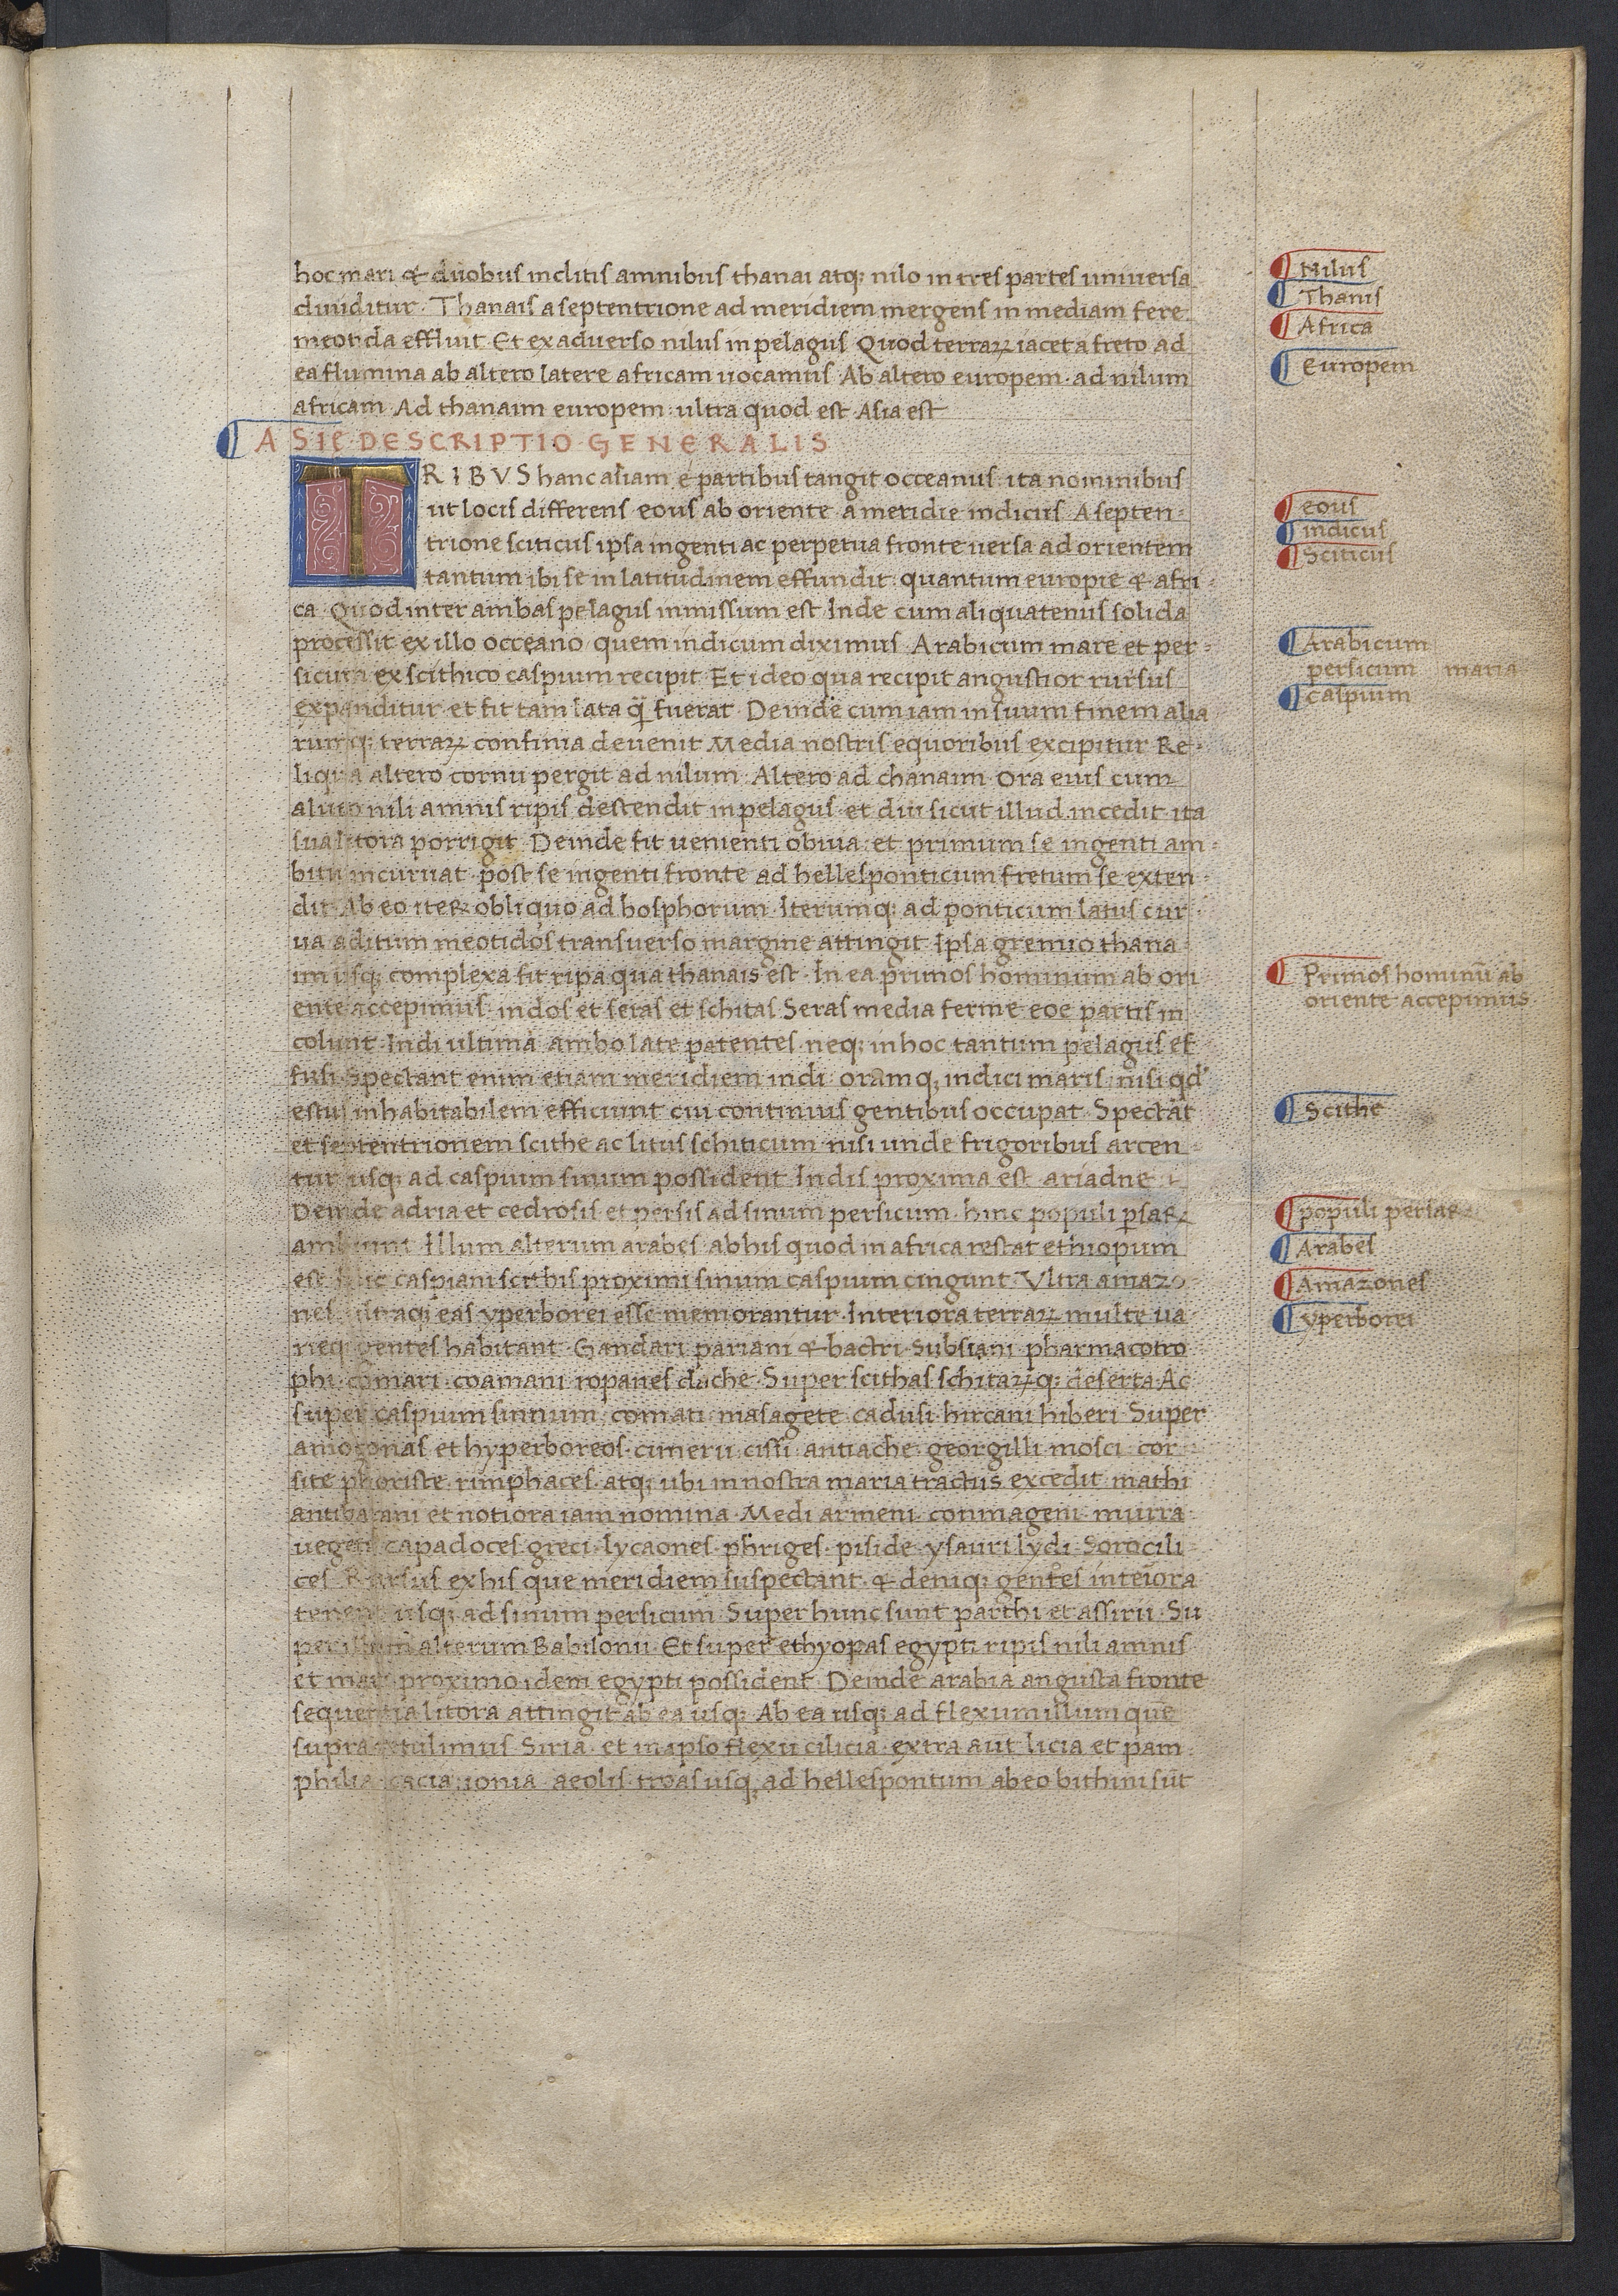 hoc mari & duobus inclitis amnibus thanai atq; nilo in tres partes universa
diuiditur · Thanais a septentrione ad meridiem mergens in mediam fere
meotida effluit Et ex aduerso nilus in pelagus Quod terraꝝ iacet a freto ad
ea flumina ab altero latere africam uocamus Ab altero europem · ad nilum
africam Ad thanaim europem · ultra quod est Asia est
ASIE · DESCRIPTIO · GENERALIS
TRIBVS hanc asiam e partibus tangit occeanus · ita nominibus
ut locis differens eous ab oriente a meridie indicus A septen-
trione sciticus ipsa ingenti ac perpetua fronte uersa ad orientem
tantum ibi se in latitudinem effundit · quantum europie & afri-
ca Quod inter ambas pelagus inmissum est Inde cum aliquatenus solida
processit ex illo occeano quem indicum diximus Arabicum mare et per-
sicum ex scithico caspium recipit Et ideo qua recipit angustior rursus
expanditur et fit tam lata q̃ fuerat · Deinde cum iam in suum finem alia
rumq; terraꝝ confinia deuenit Media nostris equoribus excipitur Re-
liqua altero cornu pergit ad nilum · Altero ad thanaim Ora eius cum
alueo nili amnis ripis descendit in pelagus · et diu sicut illud incedit ita
sua litora porrigit Deinde fit uenienti obuia · et primum se ingenti am-
bitu incuruat · post se ingenti fronte ad hellesponticum fretum se exten-
dit Ab eo iter obliquo ad bosphorum · Iterumq; ad ponticum latus cur-
ua aditum meotidos transuerso margine attingit Ipsa gremio thana-
im usq; complexa fit ripa qua thanais est · In ea primos hominum ab ori
ente accepimus · indos et seras et schitas Seras media ferme eoe partis in
colunt · Indi ultima ambo late patentes · neq; in hoc tantum pelagus ef
fusi Spectant enim etiam meridiem indi · oramq; indici maris · nisi qd
estus inhabitabilem efficiunt cui continuis gentibus occupat · Spectāt
et septentrionem scithe ac litus schiticum nisi unde frigoribus arcen
tur usq; ad caspium sinum possident Indis proxima est ariadne
Deinde adria et cedrosis et persis ad sinum persicum · hinc populi p̲saꝝ
ambiunt Illum alterum arabes ab his quod in africa restat ethiopum
est hic caspiani scithis proximi sinum caspium cingunt · Vltra amazo
nes ultraq; eas yperborei esse memorantur · Interiora terraꝝ multe ua
rieq; gentes habitant · Gandari pariani & bactri · subsiani · pharmacotro
phi · comari · coamani ropanes dache · Super scithas schitaꝝq; deserta Ac
super caspium sinnum · comati masagete cadusi · hircani hiberi · Super
amozonas et hyperboreos · cimerii cissi antiache georgilli mosci cor-
site phoriste · rimphaces · atq; ubi in nostra maria tractus excedit mathi
antibarani et notiora iam nomina · Medi armeni commageni murra
uegeti capadoces greci · lycaones phriges · piside ysauri lydi · Sorocili
ces Rursus ex his que meridiem suspectant · & deniq; gentes inteiora
tenent usq; ad sinum persicum Super hunc sunt parthi et assirii · Su
per illum alterum Babilonii · Et super ethyopas egypti ripis nili amnis
et mari proximo idem egypti possident Deinde arabia angusta fronte
sequentia litora attingit ab ea usq; Ab ea usq; ad flexum illum que
supra retulimus Siria · et in ipso flexu cilicia · extra aut licia et pam
philia cacia · ionia · aeolis · troas usq; ad hellespontum ab eo bithini sūt
Nilus
Thanis
Africa
Europem
eous
indicus
Sciticus
Arabicum
persicum maria
caspium
Primos hominū ab
oriente accepimus
Scithe
populi persaꝝ
Arabes
Amazones
yperborei